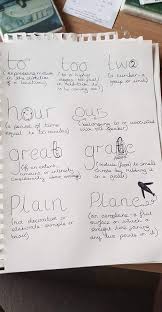 to too two
(expressing motion (to a higher (a number -
in the direction
of a location)
hour our
(a period of time (belonging to or associated
equal to 60 minutes)
great grate
(of an extent, (reduce food to small
amount or intensity shreds by rubbing it
considerably above average) on a grater)
Plain Plane
(not decorated or (an aeroplane, a flat
elaborate, simple or surface on which a
basic) straight line joining
any two points on it)